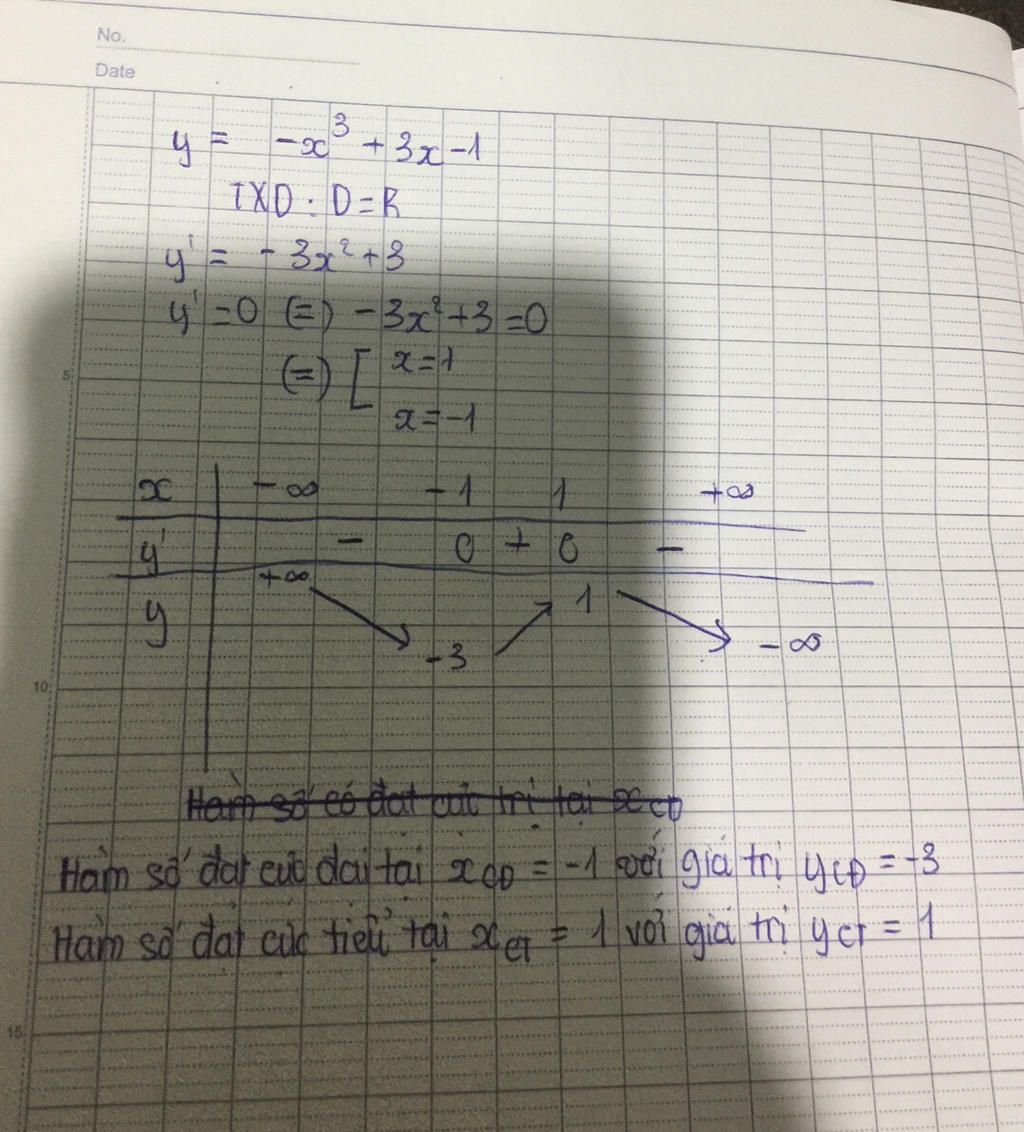 No.
Date
y = -x³ + 3x - 1
TXD : D = R
y' = - 3x² + 3
y' = 0 (=) - 3x² + 3 = 0
5
(=) [ x = 1
x = -1
x -∞ -1 1 +∞
y' - 0 + 0 -
y +∞ -3 1 -∞
10
Hàm số có đạt cực trị tại xCĐ
Hàm số đạt cực đại tại xCĐ = -1 với giá trị yCĐ = -3
Hàm số đạt cực tiểu tại xCT = 1 với giá trị yCT = 1
15